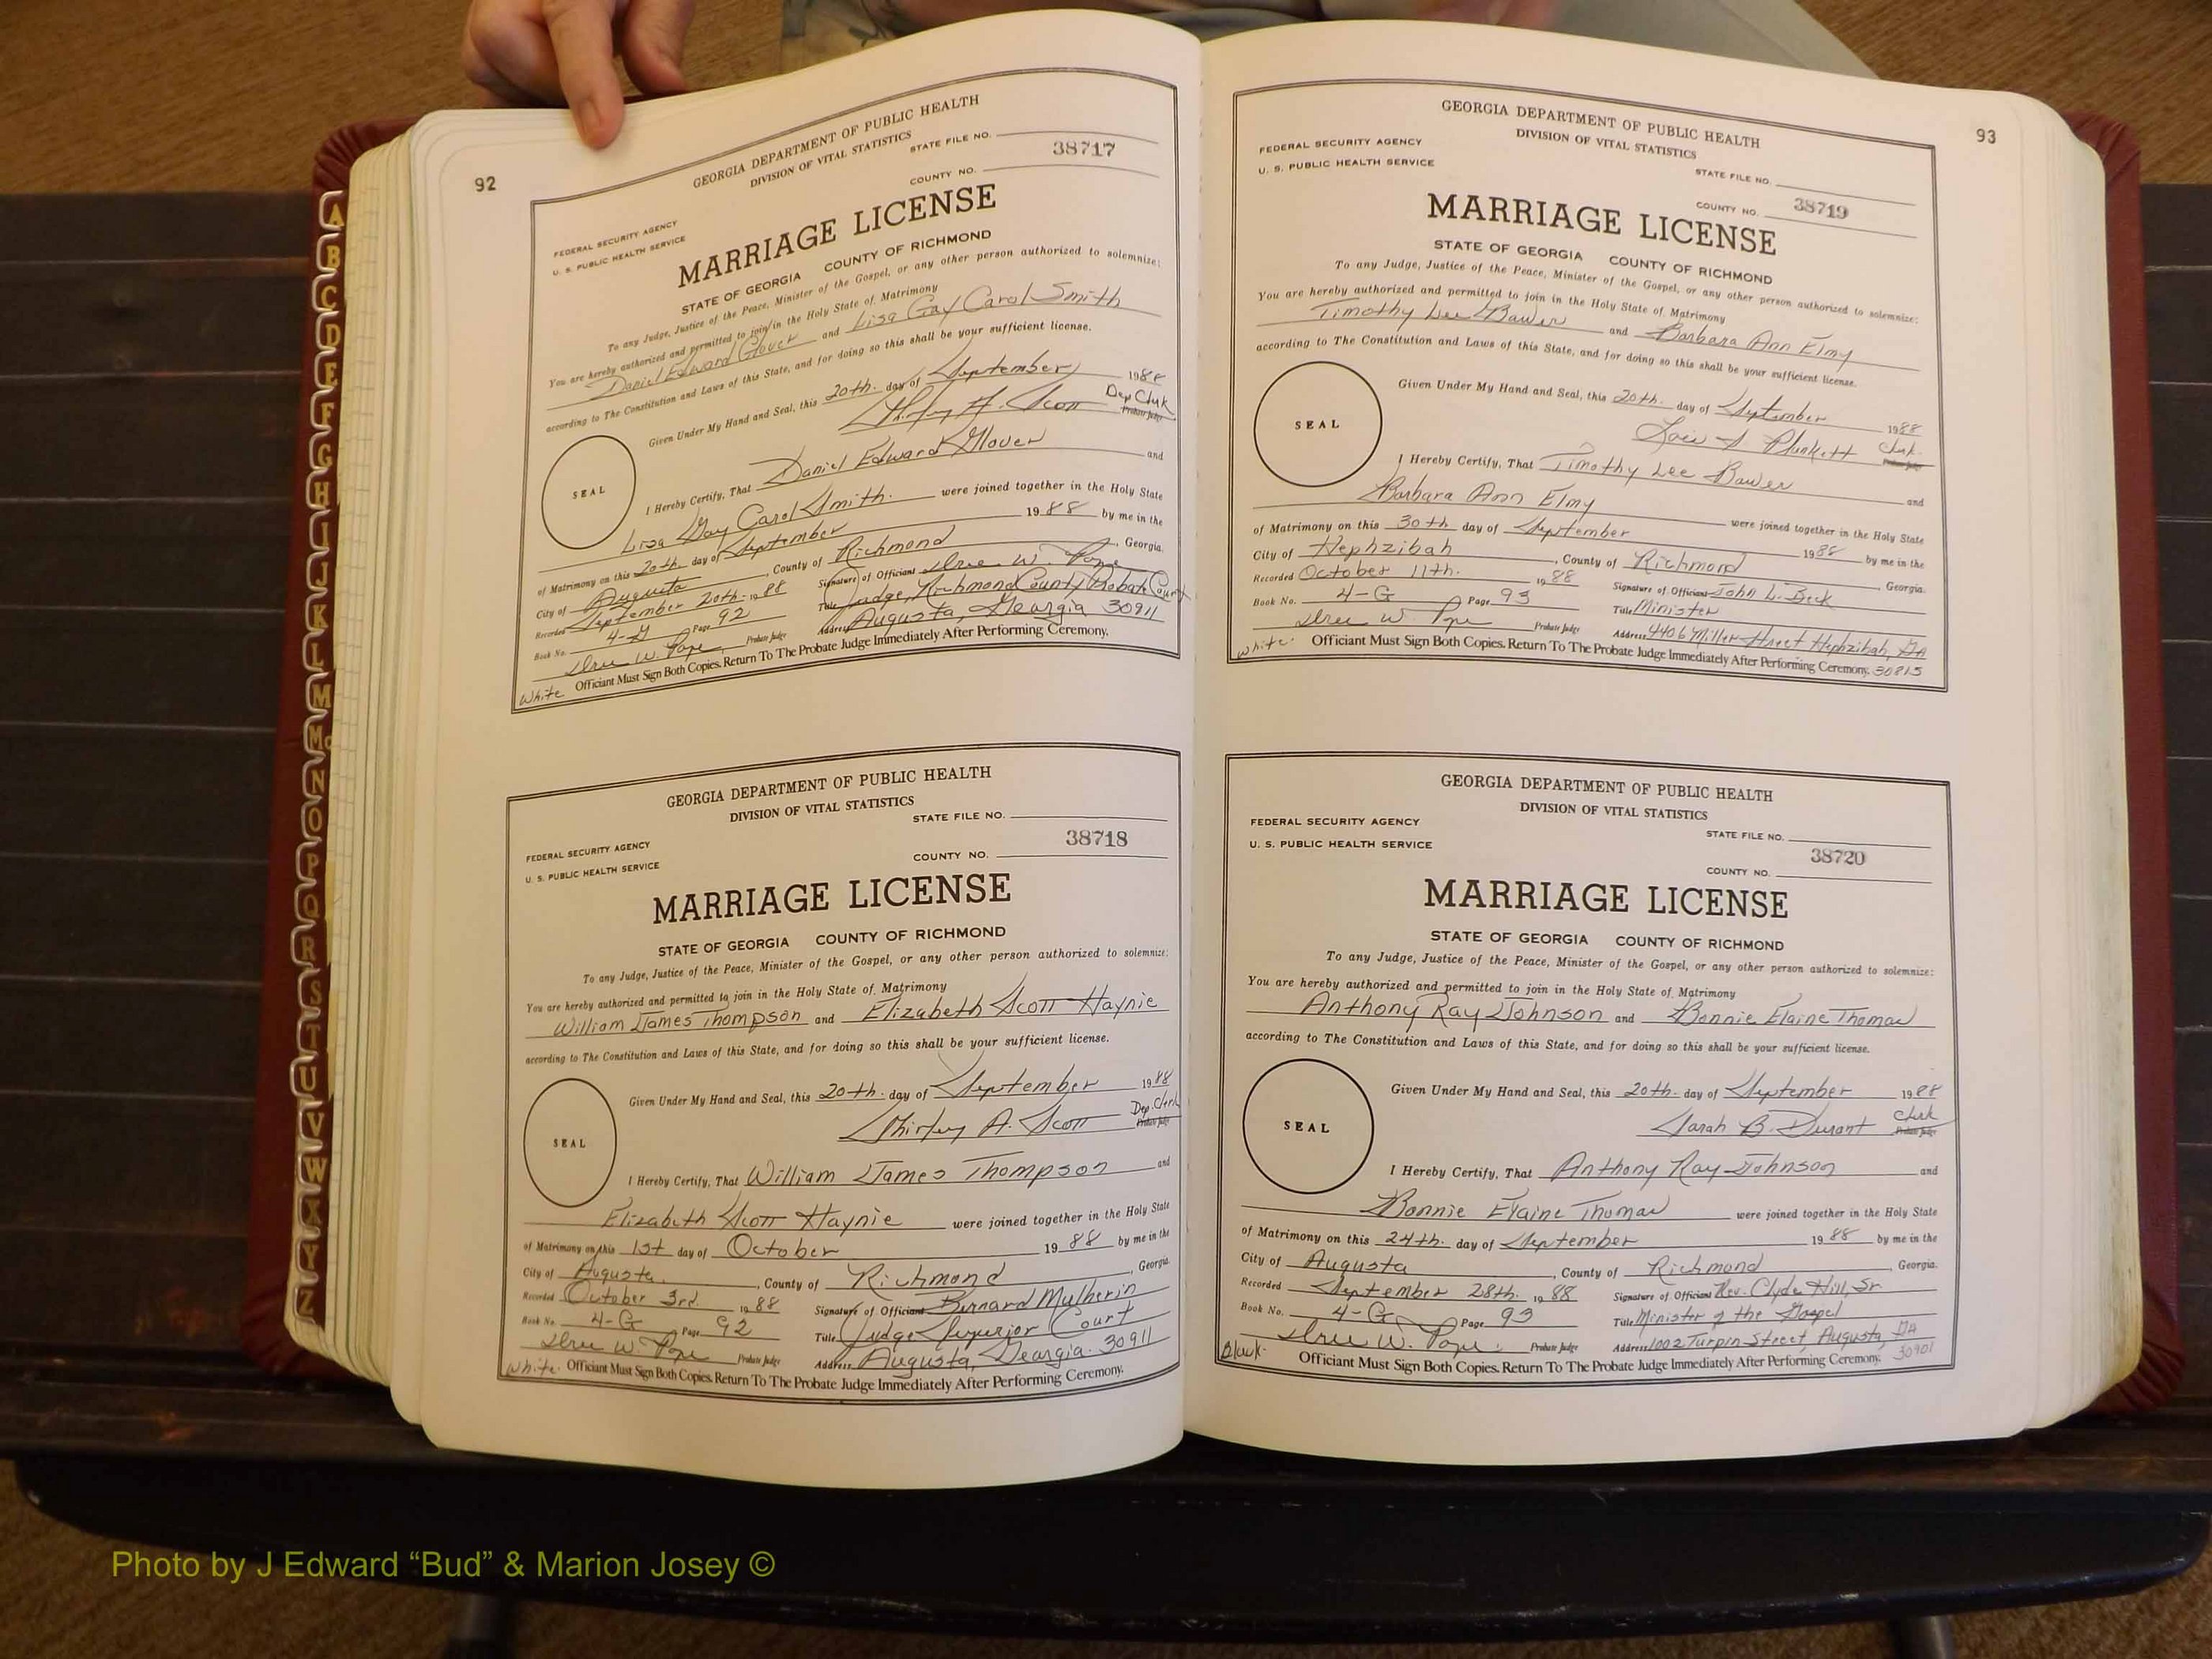 92
GEORGIA DEPARTMENT OF PUBLIC HEALTH
DIVISION OF VITAL STATISTICS
STATE FILE NO.
38717
COUNTY NO.
FEDERAL SECURITY AGENCY
U. S. PUBLIC HEALTH SERVICE
MARRIAGE LICENSE
STATE OF GEORGIA COUNTY OF RICHMOND
To any Judge, Justice of the Peace, Minister of the Gospel, or any other person authorized to solemnize:
You are hereby authorized and permitted to join in the Holy State of Matrimony
Daniel Edward Glover and Lisa Gay Carol Smith
according to The Constitution and Laws of this State, and for doing so this shall be your sufficient license.
Given Under My Hand and Seal, this 20th. day of September 1988
Shirley A. Scott Dep Clerk
Probate Judge
SEAL
I Hereby Certify, That Daniel Edward Glover and
Lisa Gay Carol Smith were joined together in the Holy State
of Matrimony on this 20th. day of September 1988 by me in the
City of Augusta, County of Richmond, Georgia.
Recorded September 20th. 1988 Signature of Officiant W. Pope
Book No. 4-G Page 92 Title Judge, Richmond County Probate Court
W. Pope Probate Judge Address Augusta, Georgia 30911
White Officiant Must Sign Both Copies. Return To The Probate Judge Immediately After Performing Ceremony.
GEORGIA DEPARTMENT OF PUBLIC HEALTH
DIVISION OF VITAL STATISTICS
STATE FILE NO.
38718
COUNTY NO.
FEDERAL SECURITY AGENCY
U. S. PUBLIC HEALTH SERVICE
MARRIAGE LICENSE
STATE OF GEORGIA COUNTY OF RICHMOND
To any Judge, Justice of the Peace, Minister of the Gospel, or any other person authorized to solemnize:
You are hereby authorized and permitted to join in the Holy State of Matrimony
William James Thompson and Elizabeth Scott Haynie
according to The Constitution and Laws of this State, and for doing so this shall be your sufficient license.
Given Under My Hand and Seal, this 20th. day of September 1988
Shirley A. Scott Dep. Clerk
Probate Judge
SEAL
I Hereby Certify, That William James Thompson and
Elizabeth Scott Haynie were joined together in the Holy State
of Matrimony on this 1st day of October 1988 by me in the
City of Augusta, County of Richmond, Georgia.
Recorded October 3rd. 1988 Signature of Officiant Bernard Mulherin
Book No. 4-G Page 92 Title Judge Superior Court
W. Pope Probate Judge Address Augusta, Georgia. 30911
White. Officiant Must Sign Both Copies. Return To The Probate Judge Immediately After Performing Ceremony.
93
GEORGIA DEPARTMENT OF PUBLIC HEALTH
DIVISION OF VITAL STATISTICS
FEDERAL SECURITY AGENCY
U. S. PUBLIC HEALTH SERVICE
STATE FILE NO.
COUNTY NO. 38719
MARRIAGE LICENSE
STATE OF GEORGIA COUNTY OF RICHMOND
To any Judge, Justice of the Peace, Minister of the Gospel, or any other person authorized to solemnize:
You are hereby authorized and permitted to join in the Holy State of Matrimony
Timothy Lee Bawer and Barbara Ann Elmy
according to The Constitution and Laws of this State, and for doing so this shall be your sufficient license.
Given Under My Hand and Seal, this 20th. day of September 1988
Lois S Plunkett Clerk.
Probate Judge
SEAL
I Hereby Certify, That Timothy Lee Bawer and
Barbara Ann Elmy were joined together in the Holy State
of Matrimony on this 30th day of September 1988 by me in the
City of Hephzibah, County of Richmond Georgia.
Recorded October 11th. 1988 Signature of Officiant John L. Beck
Book No. 4-G Page 93 Title Minister
W. Pope Probate Judge Address 4406 Miller Street Hephzibah, GA
White. Officiant Must Sign Both Copies. Return To The Probate Judge Immediately After Performing Ceremony. 30815
GEORGIA DEPARTMENT OF PUBLIC HEALTH
DIVISION OF VITAL STATISTICS
FEDERAL SECURITY AGENCY
U. S. PUBLIC HEALTH SERVICE
STATE FILE NO.
38720
COUNTY NO.
MARRIAGE LICENSE
STATE OF GEORGIA COUNTY OF RICHMOND
To any Judge, Justice of the Peace, Minister of the Gospel, or any other person authorized to solemnize:
You are hereby authorized and permitted to join in the Holy State of Matrimony
Anthony Ray Johnson and Bonnie Elaine Thomas
according to The Constitution and Laws of this State, and for doing so this shall be your sufficient license.
Given Under My Hand and Seal, this 20th. day of September 1988
Sarah B. Durant Clerk
Probate Judge
SEAL
I Hereby Certify, That Anthony Ray Johnson and
Bonnie Elaine Thomas were joined together in the Holy State
of Matrimony on this 24th. day of September 1988 by me in the
City of Augusta, County of Richmond, Georgia.
Recorded September 28th. 1988 Signature of Officiant Rev. Clyde Hill, Sr.
Book No. 4-G Page 93 Title Minister of the Gospel
W. Pope. Probate Judge Address 1002 Turpin Street, Augusta, GA
Black. Officiant Must Sign Both Copies. Return To The Probate Judge Immediately After Performing Ceremony. 30901
A
B
C
D
E
F
G
H
I
J
K
L
M
Mc
N
O
P
Q
R
S
T
U
V
W
X
Y
Z
Photo by J Edward “Bud” & Marion Josey ©